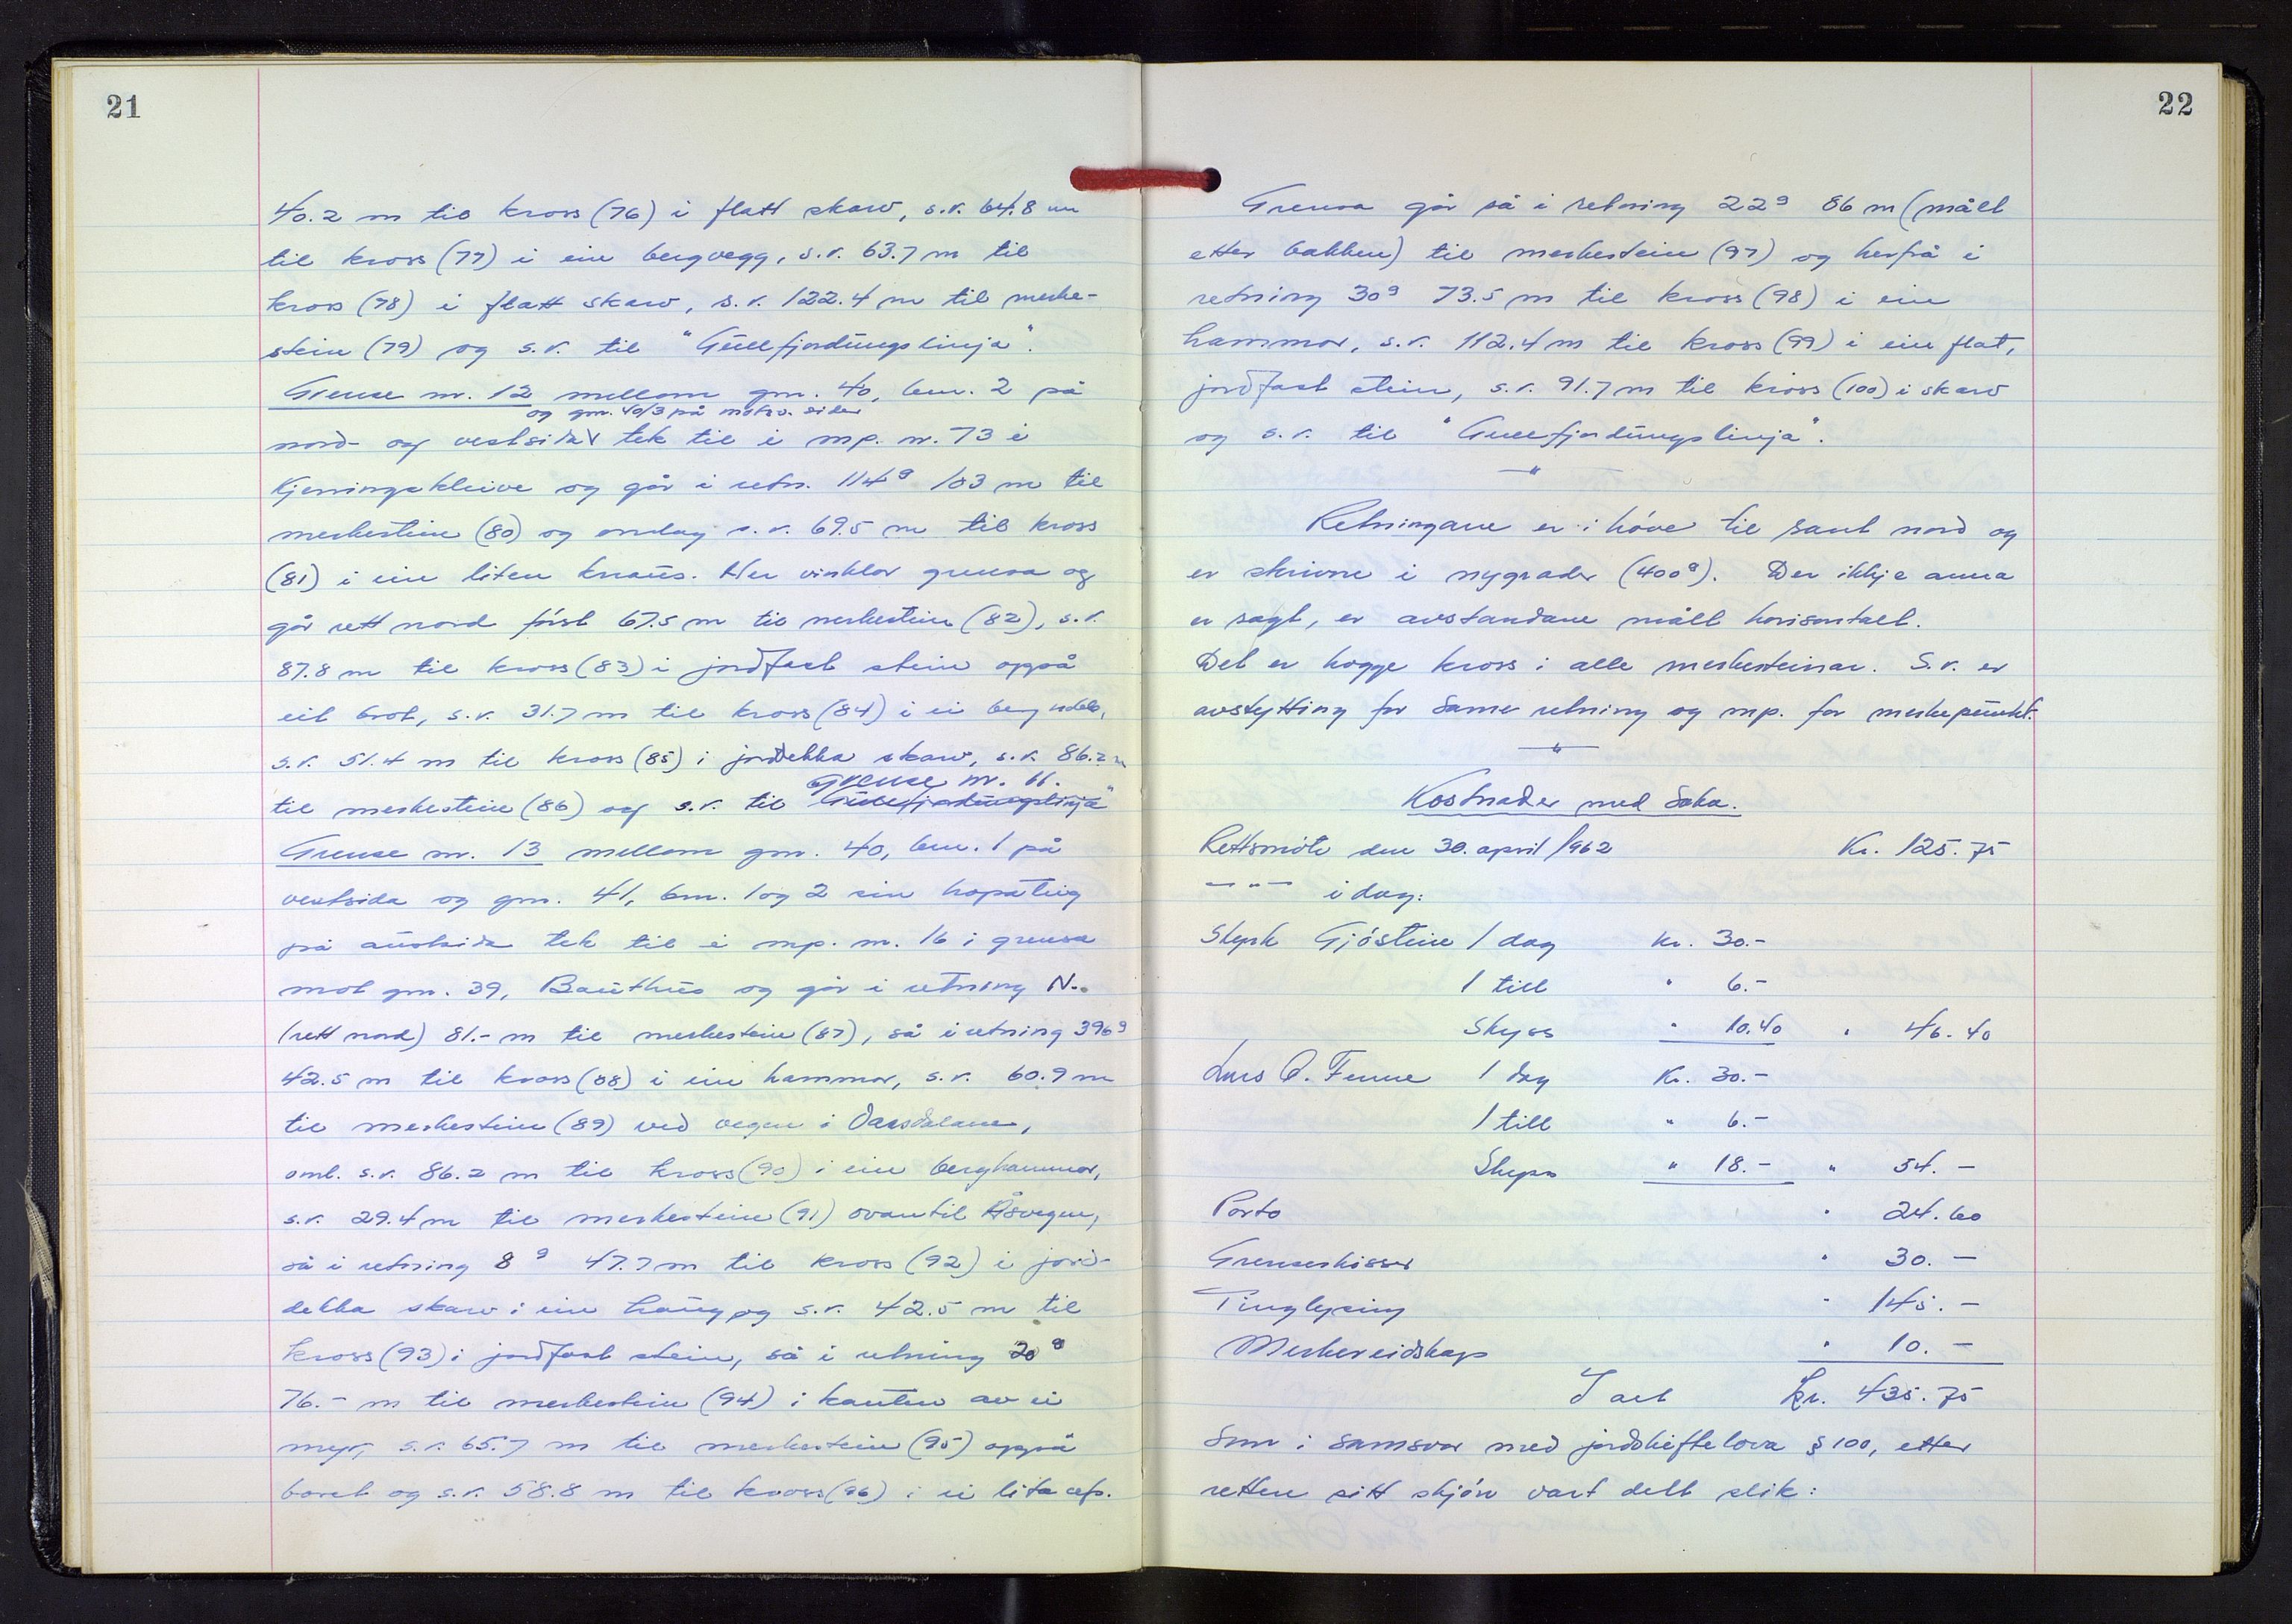 21
40.2 m til kross (76) i flatt skarv, s.r. 64.8 m
til kross (77) i ein bergvegg, s.r. 63.7 m til
kross (78) i flatt skarv, s.r. 122.4 m til merke-
stein (79) og s.r. til "Gullfjordungslinja".
Grense nr. 12 mellom gnr. 40, bnr. 2 på
og gnr. 40/3 på mots. sider
nord- og vestsida tek til i mp. nr. 73 i
Kjerringakleive og går i retn. 114g 103 m til
merkestein (80) og endag s.r. 69.5 m til kross
(81) i ein liten knaus. Her vinklar grensa og
går rett nord først 67.5 m til merkestein (82), s.r.
87.8 m til kross (83) i jordfast stein oppå
eit brot, s.r. 31.7 m til kross (84) i ei berg
s.r. 51.4 m til kross (85) i jorddekka skarv, s.r. 86.2 m
Grense nr. 11.
til merkestein (86) og s.r. til "Gullfjordungslinja"
Grense nr. 13 mellom gnr. 40, bnr. 1 på
vestsida og gnr. 41, bnr. 1 og 2 sin hopateig
på austsida tek til i mp. nr. 16 i grensa
mot gnr. 39, Bauthus og går i retning N.
(rett nord) 81.- m til merkestein (87), så i retning 396g
42.5 m til kross (88) i ein hammar, s.r. 60.9 m
til merkestein (89) ved vegen i
oml. s.r. 86.2 m til kross (90) i ein berghammar,
s.r. 29.4 m til merkestein (91) ovantil Åsvegen,
så i retning 8g 47.7 m til kross (92) i jord-
dekka skarv i ein haug og s.r. 42.5 m til
kross (93) i jordfast stein, så i retning 20g
76.- m til merkestein (94) i kanten av ei
myr, s.r. 65.7 m til merkestein (95) oppå
berget og s.r. 58.8 m til kross (96) i ei lita
22
Grensa går så i retning 22g 86 m (målt
etter bakken) til merkestein (97) og herfrå i
retning 30g 73.5 m til kross (98) i ein
hammar, s.r. 112.4 m til kross (99) i ein flat,
jordfast stein, s.r. 91.7 m til kross (100) i skarv
og s.r. til "Gullfjordungslinja".
— " —
Retningane er i høve til sant nord og
er skrivne i nygrader (400g). Der ikkje anna
er sagt, er avstandane målt horisontalt.
Det er hogge kross i alle merkesteinar. S.r. er
avstytting for same retning og mp. for merkepunkt.
— " —
Kostnader med saka.
Rettsmøte den 30. april 1962 Kr. 125.75
— " — i dag:
Skjerk Gjøstein 1 dag kr. 30.-
1 till " 6.-
Skyss " 10.40 " 46.40
Lars O. Fenne 1 dag Kr. 30.-
1 till " 6.-
Skyss " 18.- " 54.-
Porto " 24.60
Grenseskisser " 30.-
Tinglysing " 145.-
Merkereidskap " 10.-
I alt kr. 435.75
Som i samsvar med jordskiftelova § 100, etter
retten sitt skjøn vart delt slik: